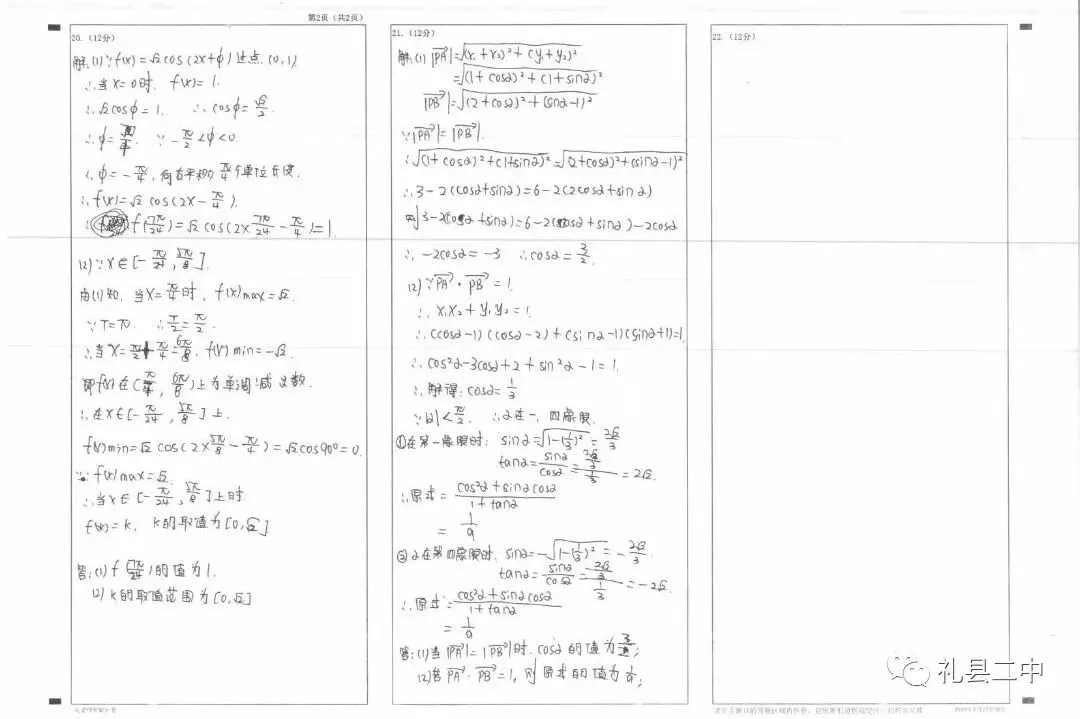 第2页（共2页）
20.（12分）
解:(1)∵f(x)=√2cos(2x+ϕ)过点(0,1)
∴当x=0时, f(x)=1.
∴√2cosϕ=1. ∴cosϕ=√2/2.
∴ϕ=π/4. ∵-π/2<ϕ<0.
∴ϕ=-π/4, 向右平移π/4个单位长度.
∴f(x)=√2cos(2x-π/4).
∴f(7π/24)=√2cos(2x7π/24-π/4)=1
(2)∵x∈[-π/24,5π/8].
由(1)知, 当x=π/4时, f(x)max=√2.
∵T=π. ∴T/2=π/2.
∴当x=π/2+π/4=6π/8, f(x)min=-√2.
即f(x)在(π/4,6π/8)上为单调减函数.
∴在x∈[-π/24,5π/8]上.
f(x)min=√2cos(2x5π/8-π/4)=√2cos90°=0.
∵f(x)max=√2.
∴当x∈[-π/24,5π/8]上时.
f(x)=k, k的取值为[0,√2]
答:(1)f(7π/24)的值为1.
(2)k的取值范围为[0,√2]
21.（12分）
解:(1)|PA|=√(x₁+x₂)²+(y₁+y₂)²
=√(1+cosα)²+(1+sinα)²
|PB|=√(2+cosα)²+(sinα-1)²
∵|PA|=|PB|.
∴√(1+cosα)²+(1+sinα)²=√(2+cosα)²+(sinα-1)²
∴3-2(cosα+sinα)=6-2(2cosα+sinα)
则3-2(cosα+sinα)=6-2(cosα+sinα)-2cosα
∴-2cosα=-3 ∴cosα=3/2.
(2)∵PA·PB=1.
∴x₁x₂+y₁y₂=1.
∴(cosα-1)(cosα-2)+(sinα-1)(sinα+1)=1
∴cos²α-3cosα+2+sin²α-1=1.
∴解得:cosα=1/3.
∵|α|<π/2. ∴α在一、四象限.
①在第一象限时: sinα=√1-(1/3)²=2√2/3
tanα=sinα/cosα=2√2/3/1/3=2√2.
∴原式=cos²α+sinαcosα/1+tanα
=1/9
②α在第四象限时, sinα=-√1-(1/3)²=-2√2/3.
tanα=sinα/cosα=2√2/3/1/3=-2√2.
∴原式=cos²α+sinαcosα/1+tanα
=1/9
答:(1)当|PA|=|PB|时, cosα的值为3/2;
(2)若PA·PB=1, 则原式的值为1/9;
22.（12分）
礼县二中